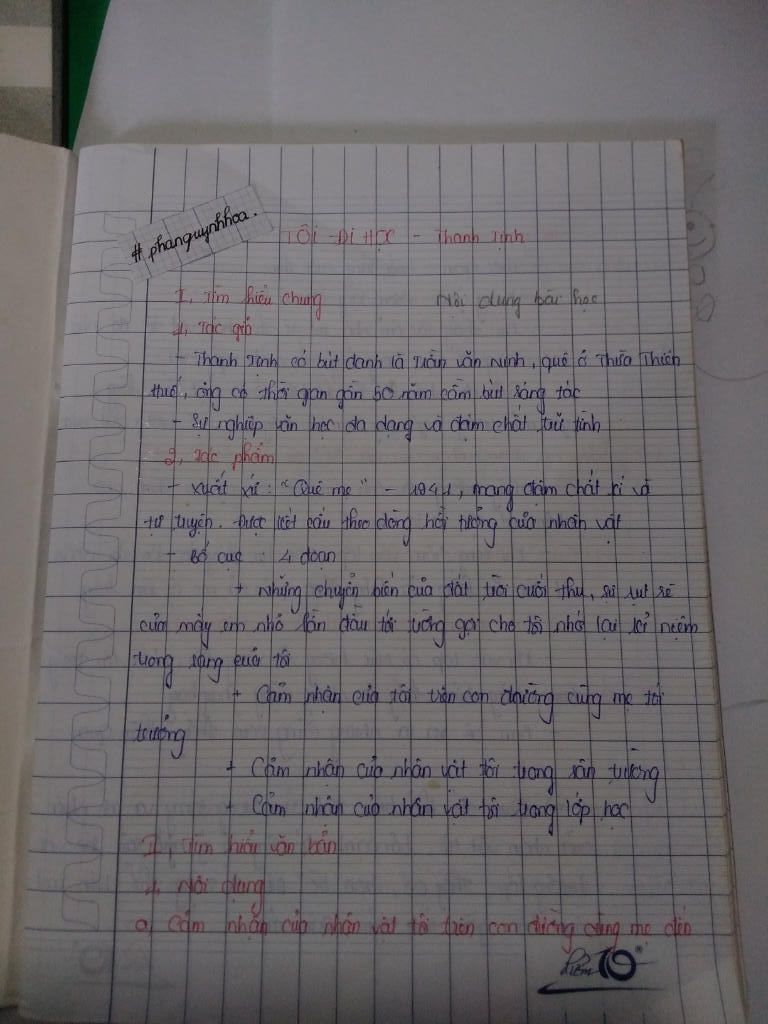 #phanquynhhoa.
TÔI ĐI HỌC - Thanh Tịnh
I, Tìm hiểu chung Nội dung bài học
1, Tác giả
- Thanh Tịnh có bút danh là Trần Văn Ninh, quê ở Thừa Thiên
Huế, ông có thời gian gần 50 năm cầm bút sáng tác
- Sự nghiệp văn học đa dạng và đậm chất trữ tình
2, Tác phẩm
- Xuất xứ: "Quê mẹ" - 1941, mang đậm chất kí và
tự truyện. Được kết cấu theo dòng hồi tưởng của nhân vật
- Bố cục : 4 đoạn
+ Những chuyển biến của đất trời cuối thu, sự rụt rè
của mấy em nhỏ lần đầu tới trường gợi cho tôi nhớ lại kỉ niệm
trong sáng của tôi
+ Cảm nhận của tôi trên con đường cùng mẹ tới
trường
+ Cảm nhận của nhân vật tôi trong sân trường
+ Cảm nhận của nhân vật tôi trong lớp học
II, Tìm hiểu văn bản
1, Nội dung
a, Cảm nhận của nhân vật tôi trên con đường cùng mẹ đến
Điểm 10